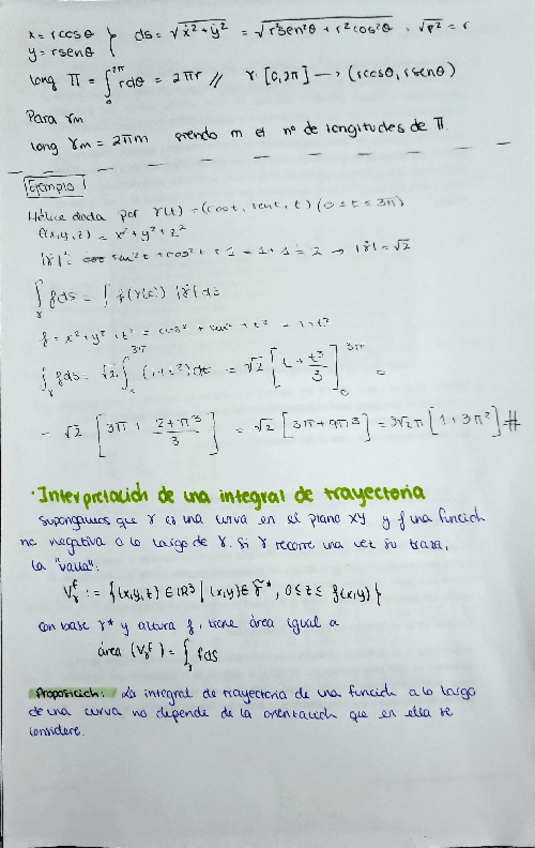 x = rcosθ
y = rsenθ } ds = √(ẋ² + ẏ²) = √(r²sen²θ + r²cos²θ) = √r² = r
long Π = ∫₀^2π rdθ = 2πr // γ: [0,2π] → (rcosθ, rsenθ)
Para γm
long γm = 2πm siendo m el nº de longitudes de Π.
Ejemplo 1
Hélice dada por γ(t) = (cost, sent, t) (0 ≤ t ≤ 3π)
f(x,y,z) = x² + y² + z²
|γ̇|² = sen²t + cos²t + 1 = 1 + 1 = 2 → |γ̇| = √2
∫γ fds = ∫ f(γ(t)) |γ̇| dt
f = x² + y² + z² = cos² + sen² + t² = 1 + t²
∫γ fds = √2 ∫^3π (1+t²) dt = √2 [t + t³/3]₀^3π =
= √2 [3π + 27π³/3] = √2 [3π + 9π³] = 3√2π [1 + 3π²] #
· Interpretación de una integral de trayectoria
Supongamos que γ es una curva en el plano xy y f una función
no negativa a lo largo de γ. Si γ recorre una vez su traza,
la "valla":
Vγ^f := {(x,y,z) ∈ ℝ³ | (x,y) ∈ γ*, 0 ≤ z ≤ f(x,y)}
con base γ* y altura f, tiene área igual a
área (Vγ^f) = ∫γ fds
Proposición: La integral de trayectoria de una función a lo largo
de una curva no depende de la orientación que en ella se
considere.